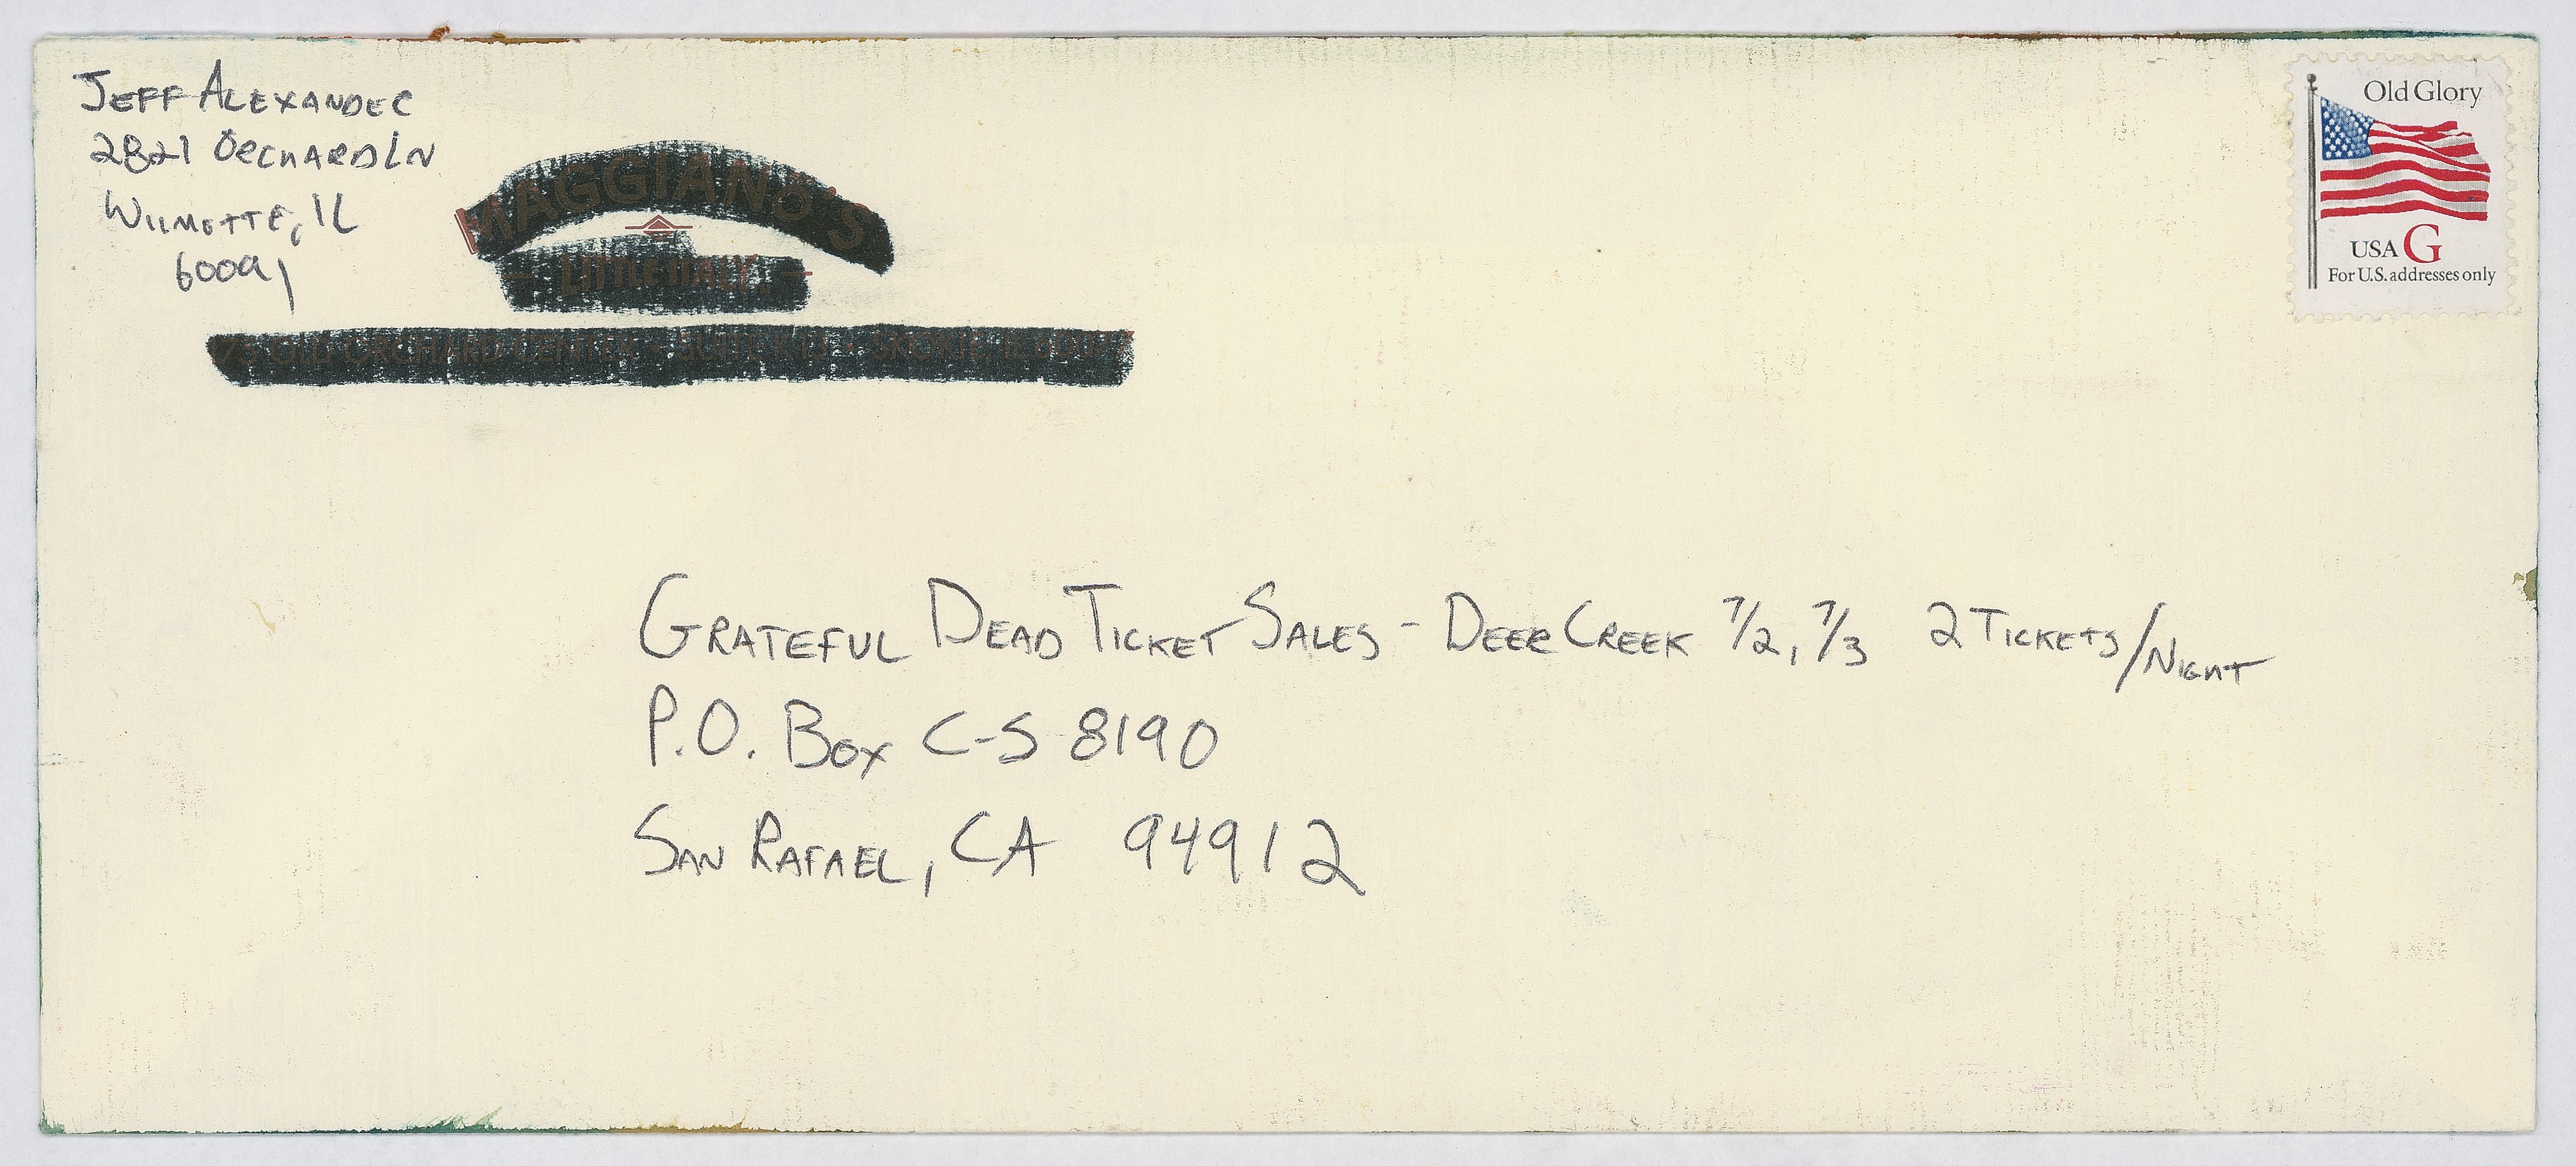 Jeff Alexander
2821 Orchard Ln
Wilmette, IL
60091
MAGGIANO'S
LITTLE ITALY
175 OLD ORCHARD CENTER • SUITE • SKOKIE, IL
Old Glory
USA G
For U.S. addresses only
Grateful Dead Ticket Sales - Deer Creek 7/2, 7/3 2 Tickets/Night
P.O. Box C-S 8190
San Rafael, CA 94912